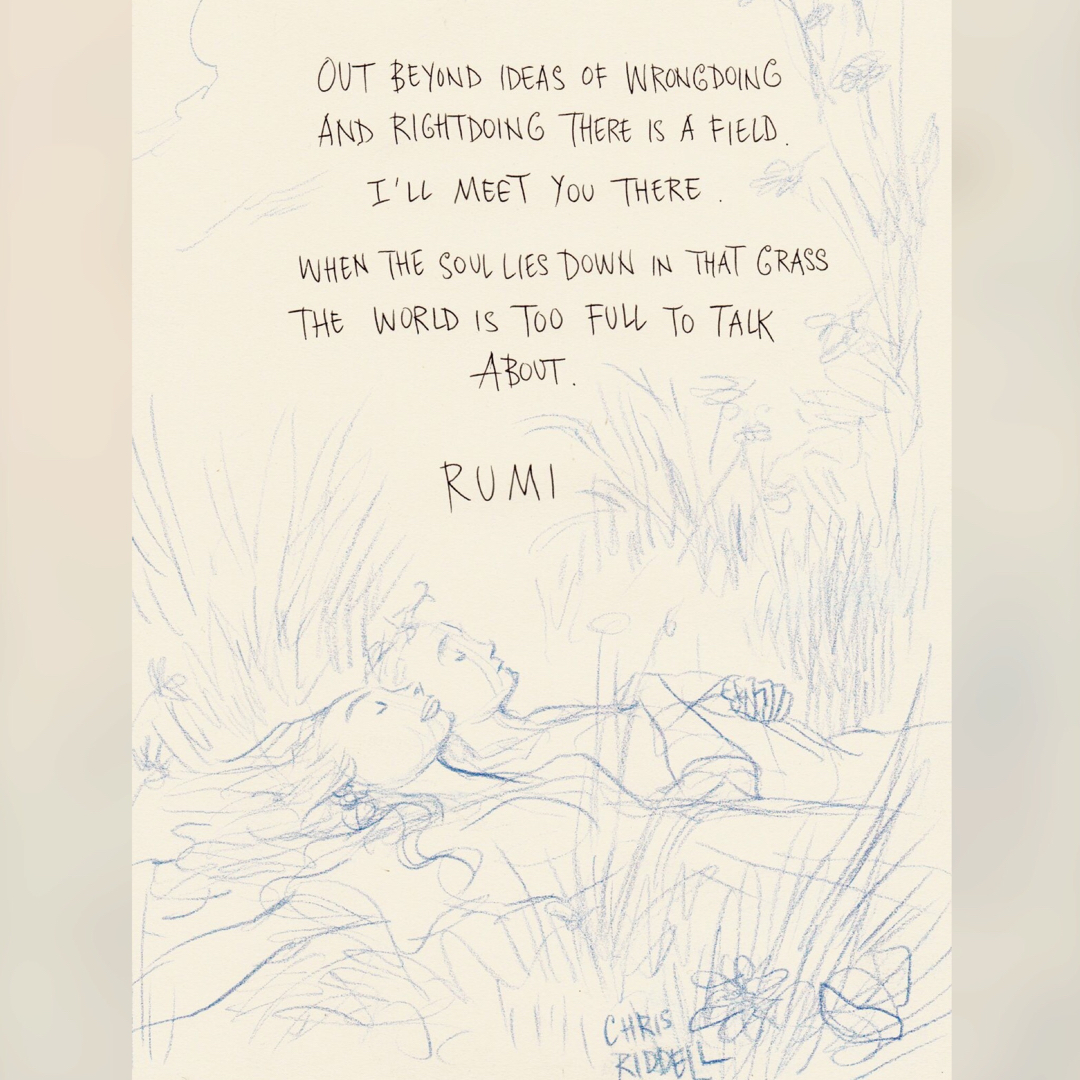 OUT BEYOND IDEAS OF WRONGDOING
AND RIGHTDOING THERE IS A FIELD.
I'LL MEET YOU THERE.
WHEN THE SOUL LIES DOWN IN THAT GRASS
THE WORLD IS TOO FULL TO TALK
ABOUT.
RUMI
CHRIS
RIDDELL